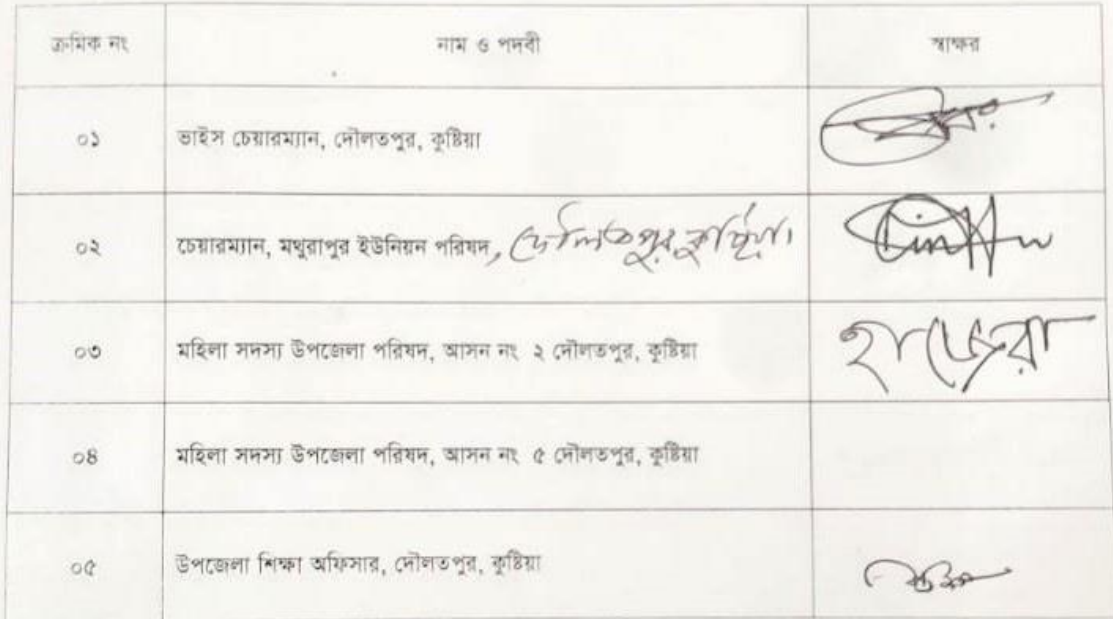 ক্রমিক নং নাম ও পদবী স্বাক্ষর
০১ ভাইস চেয়ারম্যান, দৌলতপুর, কুষ্টিয়া
০২ চেয়ারম্যান, মথুরাপুর ইউনিয়ন পরিষদ, দৌলতপুর, কুষ্টিয়া।
০৩ মহিলা সদস্য উপজেলা পরিষদ, আসন নং ২ দৌলতপুর, কুষ্টিয়া হাজেরা
০৪ মহিলা সদস্য উপজেলা পরিষদ, আসন নং ৫ দৌলতপুর, কুষ্টিয়া
০৫ উপজেলা শিক্ষা অফিসার, দৌলতপুর, কুষ্টিয়া